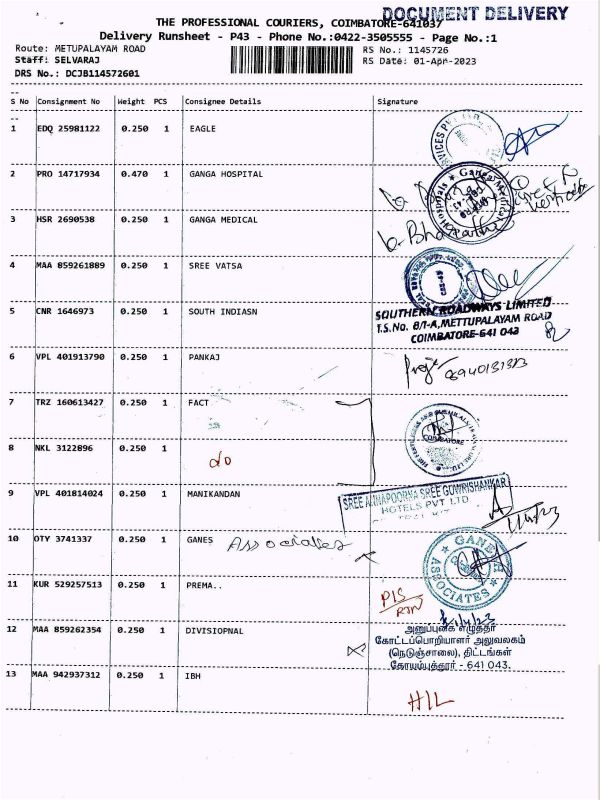 DOCUMENT DELIVERY
THE PROFESSIONAL COURIERS, COIMBATORE-641037
Delivery Runsheet - P43 - Phone No.:0422-3505555 - Page No.:1
Route: METUPALAYAM ROAD
RS No.: 1145726
Staff: SELVARAJ
RS Date: 01-Apr-2023
DRS No.: DCJB114572601
S No Consignment No Weight PCS Consignee Details Signature
1 EDQ 25981122 0.250 1 EAGLE
2 PRO 14717934 0.470 1 GANGA HOSPITAL
3 HSR 2690538 0.250 1 GANGA MEDICAL
4 MAA 859261889 0.250 1 SREE VATSA
5 CNR 1646973 0.250 1 SOUTH INDIASN
SOUTHERN ROADWAYS LIMITED
T.S.No. 8/1-A, METTUPALAYAM ROAD
COIMBATORE-641 043
6 VPL 401913790 0.250 1 PANKAJ
7 TRZ 160613427 0.250 1 FACT
COIMBATORE
8 NKL 3122896 0.250 1
do
9 VPL 401814024 0.250 1 MANIKANDAN
SREE ANNAPOORNA SREE GOWRISHANKAR
HOTELS PVT LTD
10 OTY 3741337 0.250 1 GANES Associates
GANESH
ASSOCIATES
11 KUR 529257513 0.250 1 PREMA..
P/S
RTN
12 MAA 859262354 0.250 1 DIVISIOPNAL
அனுப்புகை எழுத்தர்
கோட்டப்பொறியாளர் அலுவலகம்
(நெடுஞ்சாலை), திட்டங்கள்
கோயம்புத்தூர் - 641 043.
13 MAA 942937312 0.250 1 IBH
H/L